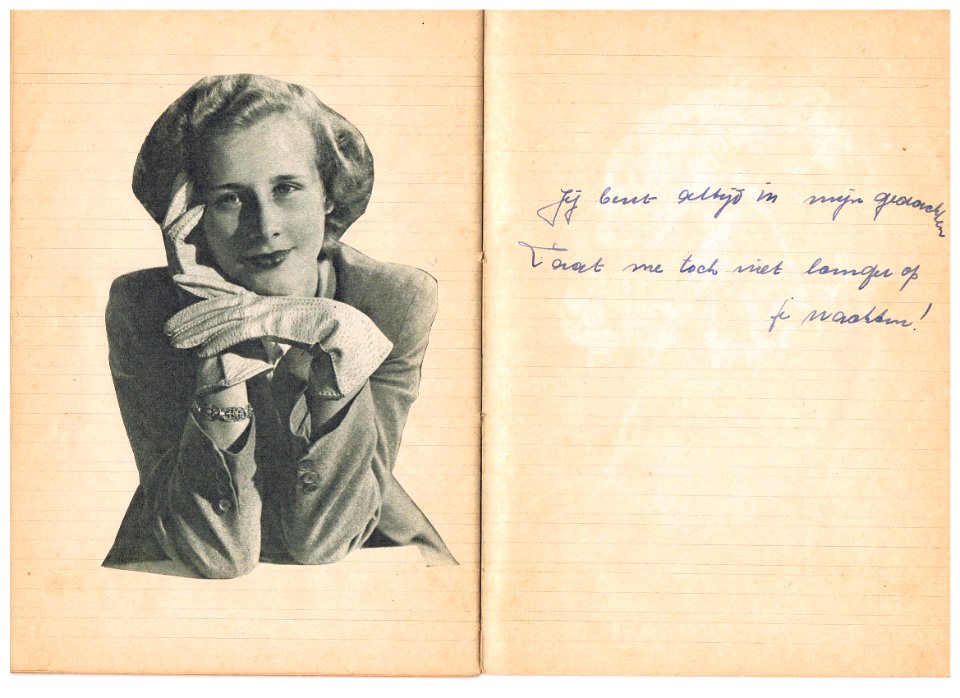 Jij bent altijd in mijn gedachten
Laat me toch niet langer op
je wachten!